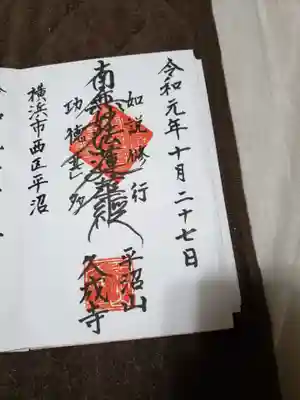 令和元年十月二十七日
如説修行
平沼山
久成寺
南無妙法蓮華経
功徳甚多
横浜市西区平沼